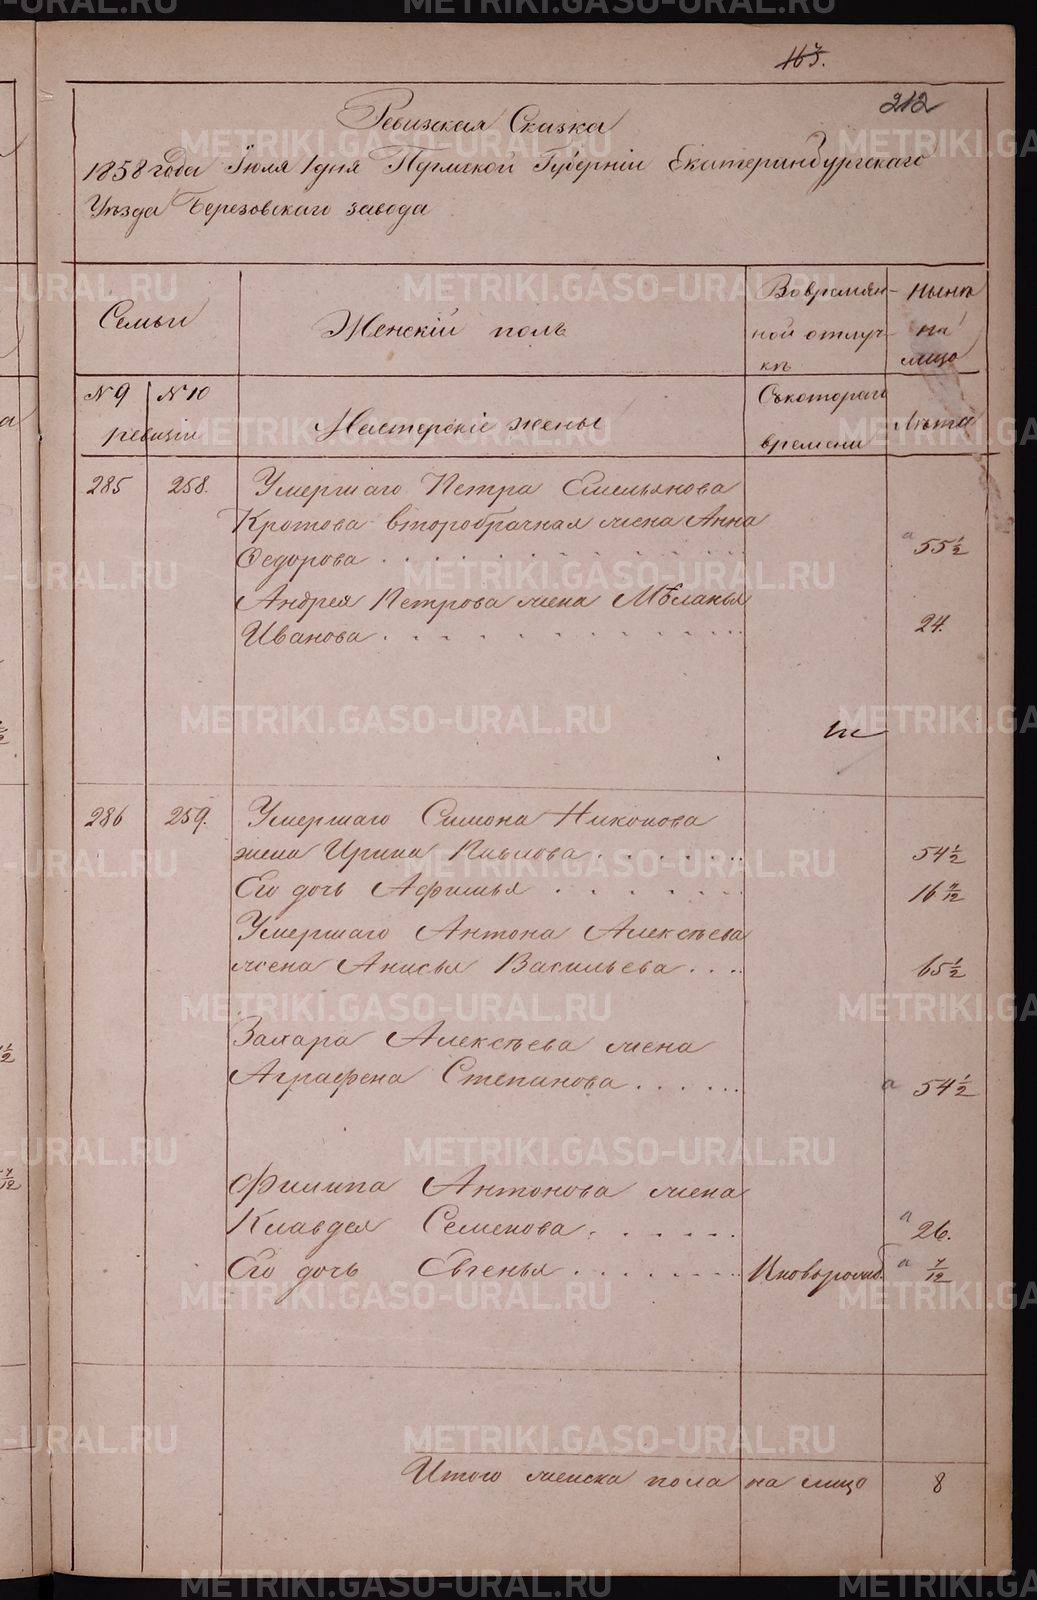 212
Ревизская Сказка
1858 года Іюля 1 дня Пермской Губерніи Екатеринбургскаго
Уѣзда Березовскаго завода
Семьи
Женскій полъ
Вовремян-
ной отлуч-
кѣ
Нынѣ
на
лицо
№ 9
№ 10
ревизіи
Мастерскіе жены
Съкотораго
времени
Лѣта
285 258. Умершаго Петра Емельянова
Кротова второбрачная жена Анна
Федорова . . . . . . . . . . 55 1/2
Андрея Петрова жена Мѣланья
Иванова . . . . . . . . . . 24.
286 259. Умершаго Симона Никонова
жена Ирина Павлова . . . . . . . 54 1/2
Его дочь Афимья . . . . . . . 16 7/12
Умершаго Антона Алексѣева
жена Анисья Васильева . . . 65 1/2
Захара Алексѣева жена
Аграфена Степанова . . . . . . а 54 1/2
Филипа Антонова жена
Клавдея Семенова . . . . . . а 26.
Его дочь Евгенья . . . . . . . . Иноворожд. а 7/12
Итого женска пола на лицо 8
METRIKI.GASO-URAL.RU